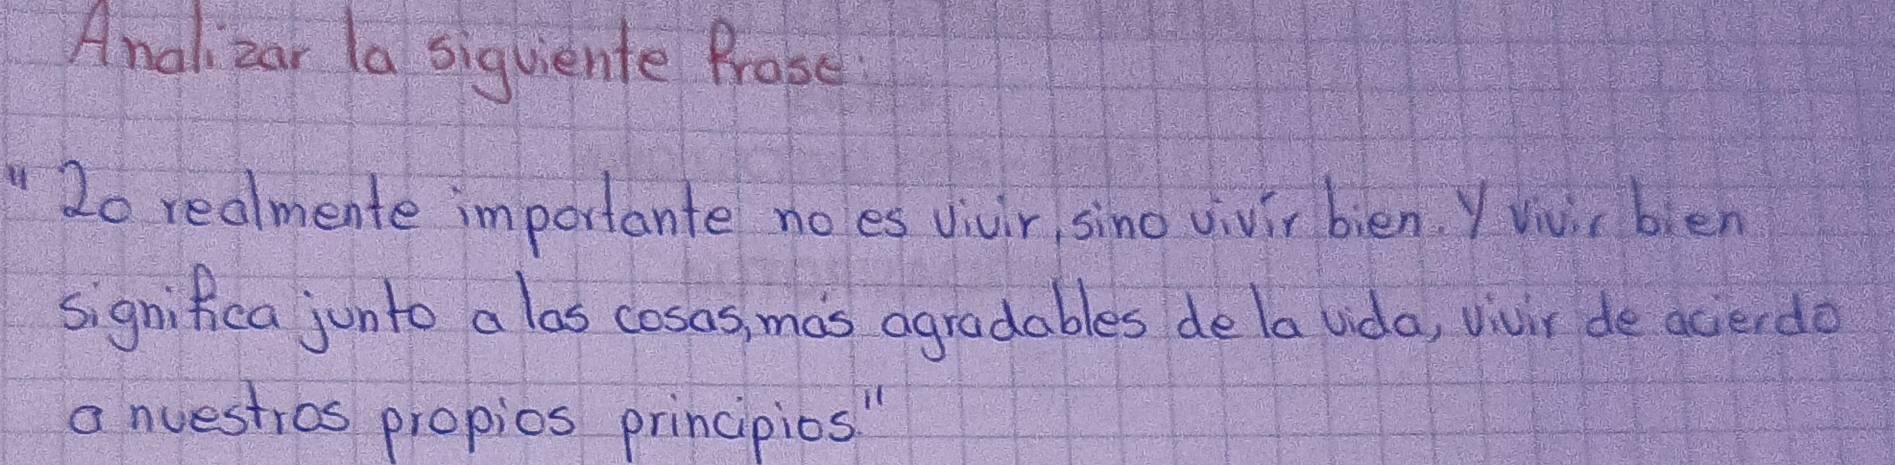 Analizar la siguiente frase:
"Lo realmente importante no es vivir, sino vivir bien. Y vivir bien
significa junto a las cosas, más agradables de la vida, vivir de acierdo
a nuestros propios principios."